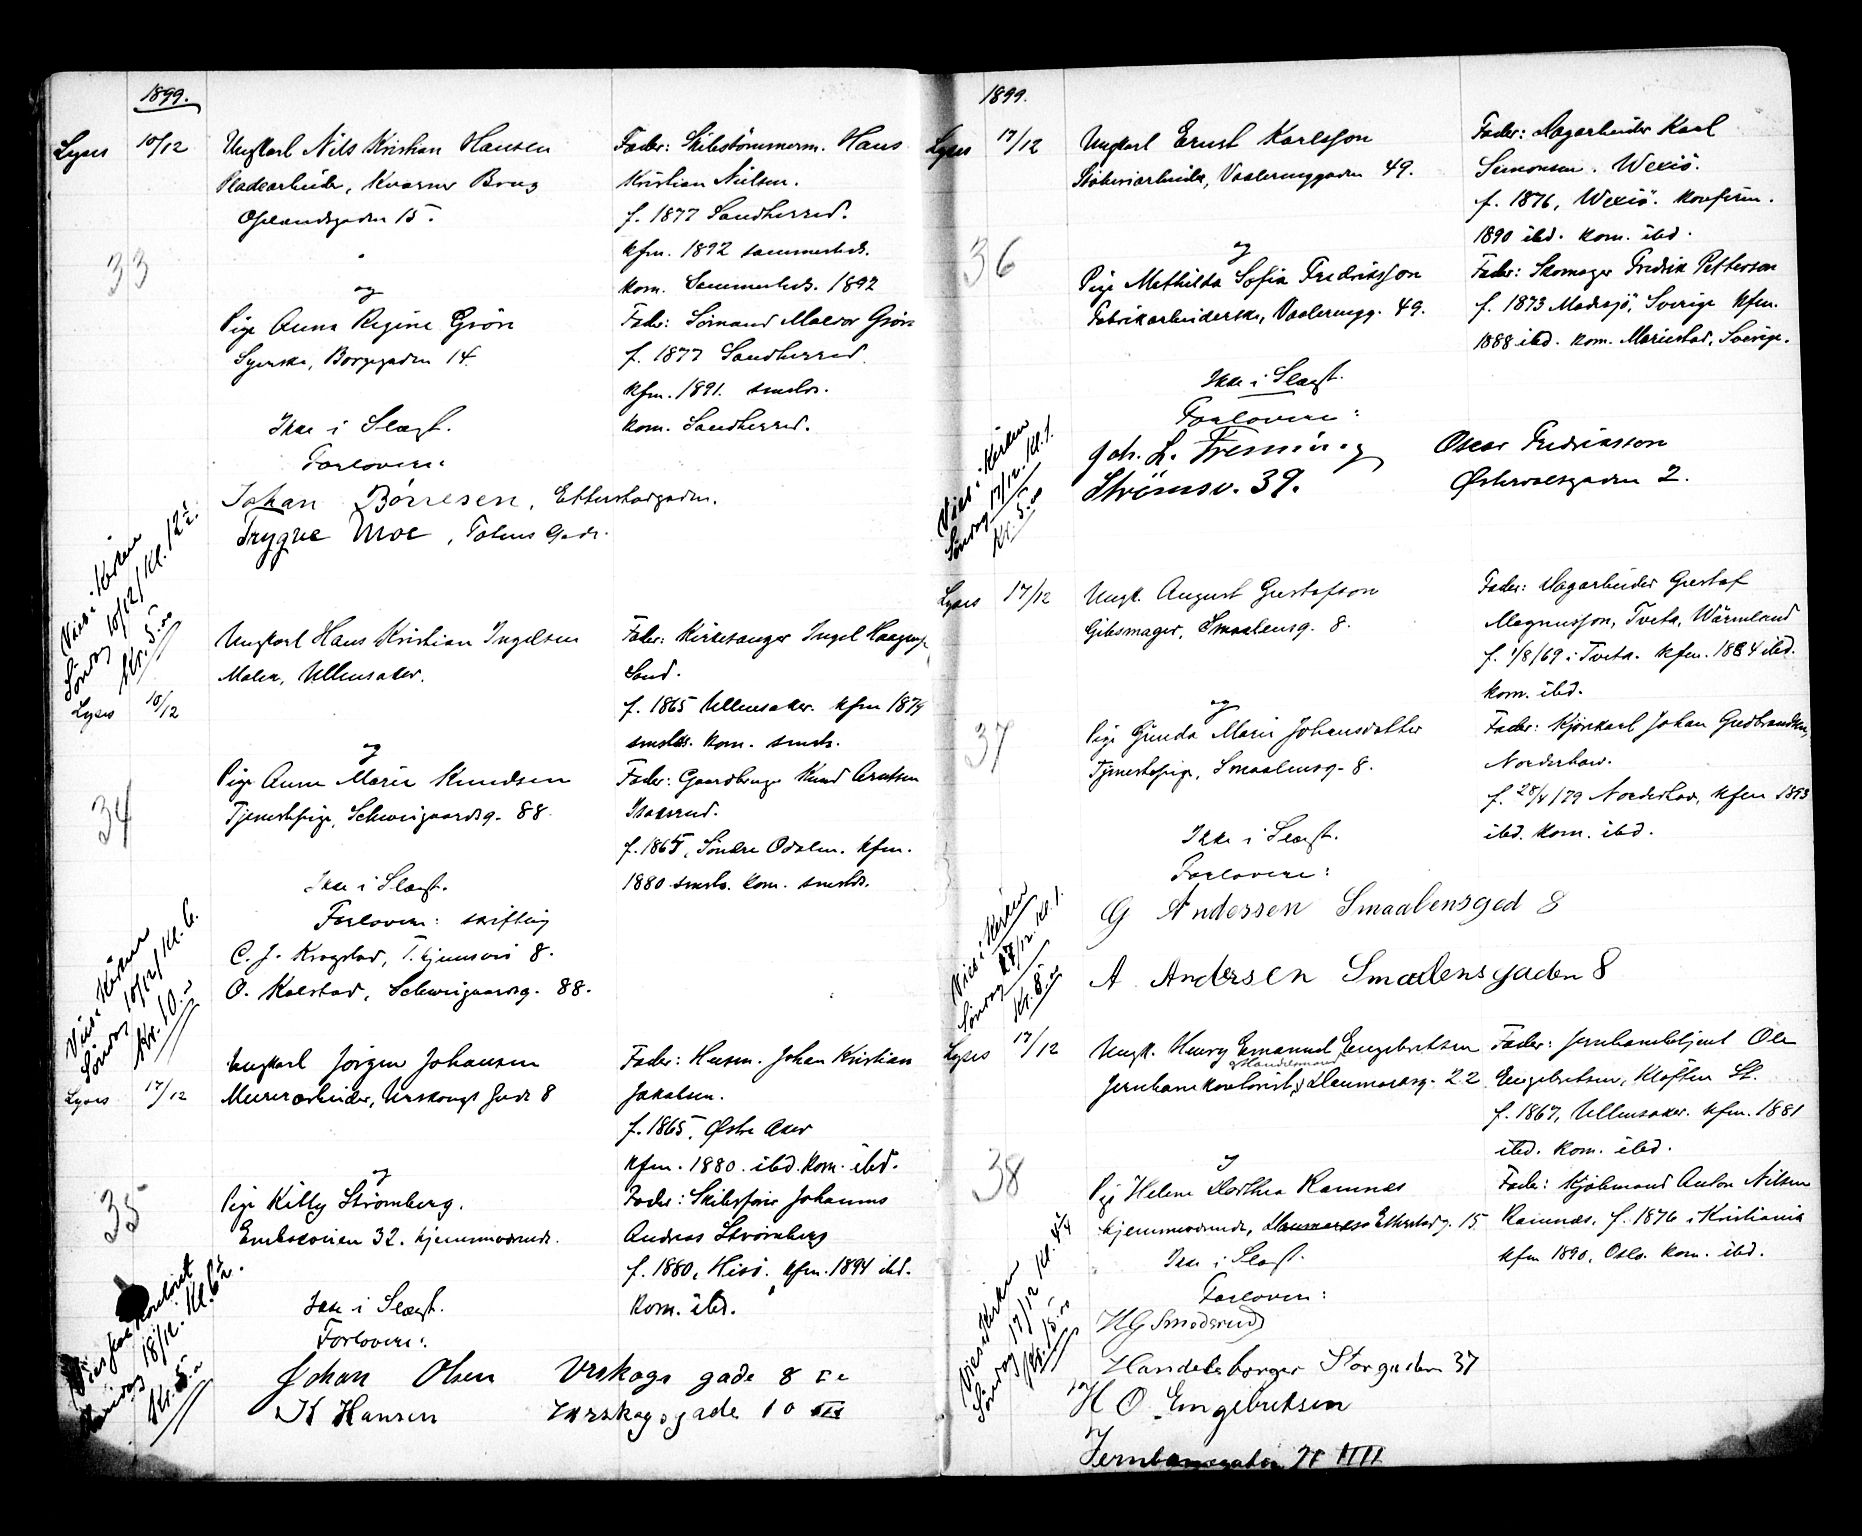 1899.
Lyses 10/12 Ungkarl Nils Kristian Hansen
Pladearbeider, Kværner Brug
Oplandsgaden 15.
33
og
Pige Anna Regine Grön
Syerske, Borgegaden 14.
Ikke i Slægt.
Forlovere:
Johan Börresen, Etterstadgaden.
Trygve Moe, Totens Gade.
Fader: Skibstömmerm. Hans
Kristian Nielsen.
f. 1877 Sandherred.
kfm. 1892 sammesteds.
kom. Sammesteds. 1892
Fader: Sömand Maedor Grön
f. 1877 Sandherred
kfm. 1891. smstds.
kom. Sandherred.
Vies i Kirken
Söndag 10/12 Kl. 12½.
Kr. 5.00
Lyses 10/12
Ungkarl Hans Kristian Ingelsen
Maler, Ullensaker.
34
og
Pige Anne Marie Knudsen
Tjenestepige, Schweigaardsg. 88.
Ikke i Slægt.
Forlovere: skriftlig
C. J. Krogstad, 8.
O. Kolstad, Schweigaardsg. 88.
Fader: Kirkesanger Ingel Haagens.
Sand.
f. 1865 Ullensaker. kfm 1879
smstds. kom. smsts.
Fader: Gaardbruger Knud Arntsen
Isakerud.
f. 1865, Söndre Odalen. kfm.
1880 smsts. kom. smstds.
Vies i Kirken
Söndag 10/12 Kl. 6.
Kr. 10.00
Lyses 17/12
Ungkarl Jörgen Johansen
Murerarbeider, Urskougs Gade 8
35
og
Pige Kitty Strömberg.
Enebakveien 32. hjemmeværende.
Ikke i Slægt.
Forlovere:
Johan Olsen Urskogs gade 8 II
K Hansen Urskogsgade 10 III
Fader: Husm. Johan Kristian
Jakobsen.
f. 1865, Østre Aker
kfm. 1880. ibd. kom. ibd.
Fader: Skibsförer Johannes
Andreas Strömberg
f. 1880, Hisö. kfm. 1894 ibd.
kom. ibd.
Vies paa Kontoret
Mandag 18/12. Kl. 6½.
Kr. 5.00
1899.
Lyses 17/12 Ungkarl Ernst Karlsson
Støberiarbeider, Vaalerenggaden 49.
36
og
Pige Mathilda Sofia Fredriksson
Fabrikarbeiderske, Vaalerengg. 49.
Ikke i Slægt.
Forlovere:
Joh. L. Fremming Oscar Fredriksson
Strömsv. 39. Østervoldsgaden 2.
Fader: Dagarbeider Karl
Simonsen. Wexiö.
f. 1876, Wexiö. konfirm.
1890 ibd. kom. ibd.
Fader: Skomager Fredrik Petterson
f. 1873 Madesjö, Sverige kfm.
1888 ibd. kom. Mariestad, Sverige.
Vies i Kirken
Söndag 17/12. Kl. 1.
Kr. 5.00
Lyses 17/12 Ungk. August Gustafson
Gibsmager, Smaalensg. 8.
37
og
Pige Gunda Marie Johansdatter
Tjenestepige, Smaalensg. 8.
Ikke i Slægt.
Forlovere:
G Andersen Smaalensgad 8
A Andersen Smaalensgaden 8
Fader: Dagarbeider Gustaf
Magnusson, Tveta, Wärmland
f. 1/8/69 i Tveta. kfm. 1884 ibd.
kom. ibd.
Fader: Kjörekarl Johan Gudbrandsen,
Norderhov.
f. 28/4/79 Norderhov, kfm 1893
ibd. kom. ibd.
Vies i Kirken
Söndag 17/12. Kl. 1.
Kr. 8.00
Lyses 17/12 Ungk. Henry Emanuel Engebretsen
Jernbanekontorist, Danmarksg. 22
38
Pige Helene Dorthea Ramnæs
hjemmeværende, Danmarksg Etterstadg. 15
Ikke i Slægt.
Forlovere:
HG Smedsrud
Handelsborger Storgaden 37
og
H O Engebretsen
Jernbanegaden IIII
Fader: Jernbanebetjent Ole
Engebretsen, Kløften St.
f. 1867, Ullensaker. kfm. 1881
ibd. kom. ibd.
Fader: Kjöbmand Anton Nilsen
Ramnæs, f. 1876 i Kristiania
kfm 1890, Oslo. kom. ibd.
Vies i Kirken
Söndag 17/12 Kl. 4¾
Kr. 15.00